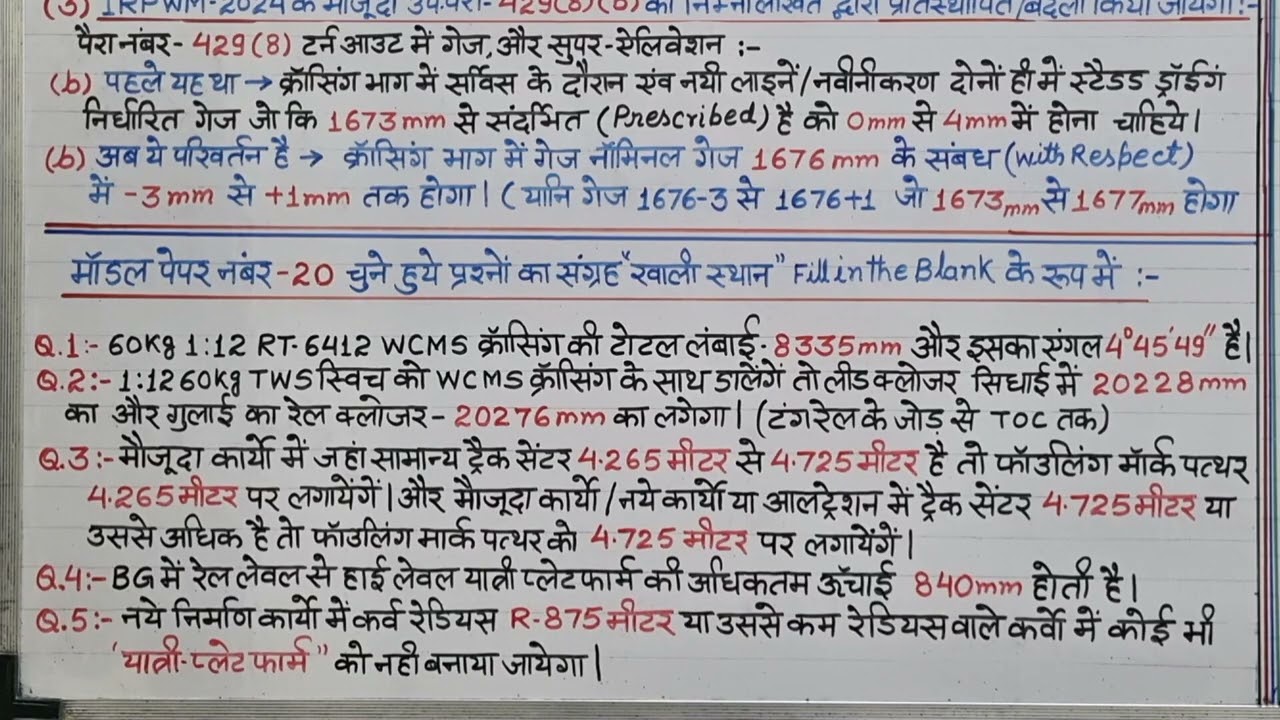 (3) IRPWM-2024 के मौजूदा उप.पैरा- 429(8)(b) को निम्नलिखित द्वारा प्रतिस्थापित/बदला किया जायेगा :-
पैरा नंबर- 429(8) टर्न आउट में गेज, और सुपर-ऐलिवेशन :-
(b) पहले यह था → क्रॉसिंग भाग में सर्विस के दौरान एंव नयी लाइनें/नवीनीकरण दोनों ही में स्टैडड ड्रॉईगं
निर्धारित गेज जो कि 1673mm से संदर्भित (Prescribed) है को 0mm से 4mm में होना चाहिये।
(b) अब ये परिवर्तन है → क्रॉसिंग भाग में गेज नॉमिनल गेज 1676mm के संबध (with Respect)
में -3mm से +1mm तक होगा। (यानि गेज 1676-3 से 1676+1 जो 1673mm से 1677mm होगा
मॉडल पेपर नंबर-20 चुने हुये प्रश्नों का संग्रह "खाली स्थान" Fill in the Blank के रूप में :-
Q.1:- 60Kg 1:12 RT-6412 WCMS क्रॉसिंग की टोटल लंबाई- 8335mm और इसका एंगल 4°45'49" है।
Q.2:- 1:12 60Kg TWS स्विच को WCMS क्रॉसिंग के साथ डालेंगें तो लीड क्लोजर सिधाई में 20228mm
का और गुलाई का रेल क्लोजर- 20276mm का लगेगा। (टंगरेल के जोड़ से TOC तक)
Q.3:- मौजूदा कार्यो में जहां सामान्य ट्रैक सेंटर 4.265मीटर से 4.725मीटर है तो फॉउलिंग मॉर्क पत्थर
4.265मीटर पर लगायेंगें। और मौजूदा कार्यो/नये कार्यो या आलट्रेशन में ट्रैक सेंटर 4.725मीटर या
उससे अधिक है तो फॉउलिंग मार्क पत्थर को 4.725 मीटर पर लगायेंगें।
Q.4:- BG में रेल लेवल से हाई लेवल यात्री प्लेटफार्म की अधिकतम ऊॅंचाई 840mm होती है।
Q.5:- नये निर्माण कार्यो में कर्व रेडियस R-875मीटर या उससे कम रेडियस वाले कर्वो में कोई भी
'यात्री-प्लेटफार्म" को नही बनाया जायेगा।